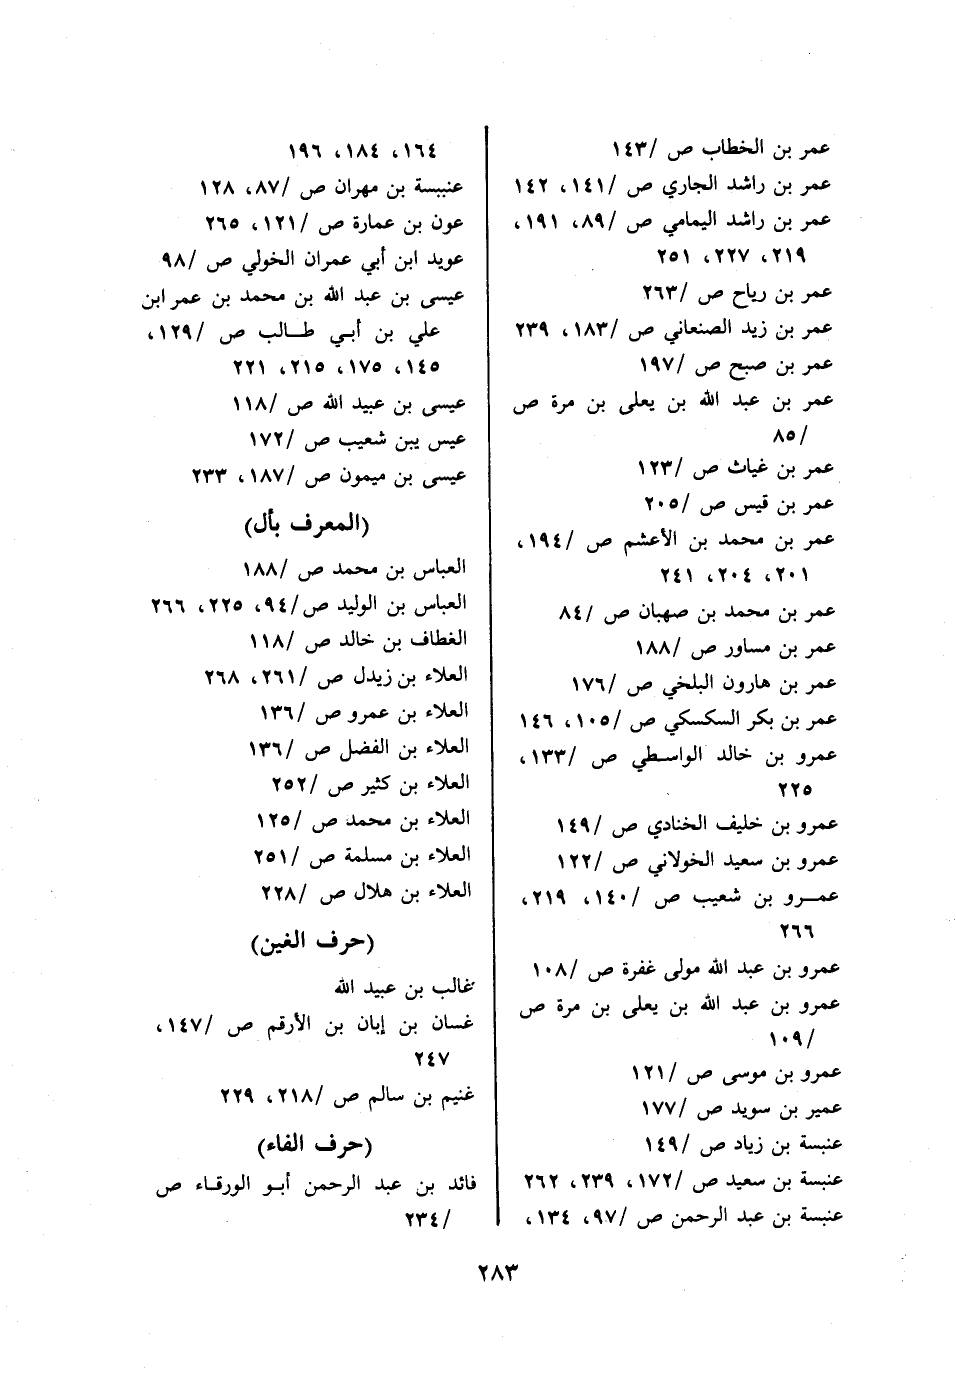 عمر بن الخطاب ص /١٤٣
عمر بن راشد الجاري ص /١٤١، ١٤٢
عمر بن راشد اليمامي ص /٨٩، ١٩١،
٢١٩، ٢٢٧، ٢٥١
عمر بن رياح ص /٢٦٣
عمر بن زيد الصنعاني ص /١٨٣، ٢٣٩
عمر بن صبح ص /١٩٧
عمر بن عبد الله بن يعلى بن مرة ص
/٨٥
عمر بن غياث ص /١٢٣
عمر بن قيس ص /٢٠٥
عمر بن محمد بن الأعشم ص /١٩٤،
٢٠١، ٢٠٤، ٢٤١
عمر بن محمد بن صهبان ص /٨٤
عمر بن مساور ص /١٨٨
عمر بن هارون البلخي ص /١٧٦
عمر بن بكر السكسكي ص /١٠٥، ١٤٦
عمرو بن خالد الواسطي ص /١٣٣،
٢٢٥
عمرو بن خليف الخنادي ص /١٤٩
عمرو بن سعيد الخولاني ص /١٢٢
عمرو بن شعيب ص /١٤٠، ٢١٩،
٢٦٦
عمرو بن عبد الله مولى غفرة ص /١٠٨
عمرو بن عبد الله بن يعلى بن مرة ص
/١٠٩
عمرو بن موسى ص /١٢١
عمير بن سويد ص /١٧٧
عنبسة بن زياد ص /١٤٩
عنبسة بن سعيد ص /١٧٢، ٢٣٩، ٢٦٢
عنبسة بن عبد الرحمن ص /٩٧، ١٣٤،
١٦٤، ١٨٤، ١٩٦
عنبيسة بن مهران ص /٨٧، ١٢٨
عون بن عمارة ص /١٢١، ٢٦٥
عويد ابن أبي عمران الخولي ص /٩٨
عيسى بن عبد الله بن محمد بن عمر ابن
علي بن أبي طالب ص /١٢٩،
١٤٥، ١٧٥، ٢١٥، ٢٢١
عيسى بن عبيد الله ص /١١٨
عيس يبن شعيب ص /١٧٢
عيسى بن ميمون ص /١٨٧، ٢٣٣
(المعرف بأل)
العباس بن محمد ص /١٨٨
العباس بن الوليد ص/٩٤، ٢٢٥، ٢٦٦
الغطاف بن خالد ص /١١٨
العلاء بن زيدل ص /٢٦١، ٢٦٨
العلاء بن عمرو ص /١٣٦
العلاء بن الفضل ص /١٣٦
العلاء بن كثير ص /٢٥٢
العلاء بن محمد ص /١٢٥
العلاء بن مسلمة ص /٢٥١
العلاء بن هلال ص /٢٢٨
(حرف الغين)
غالب بن عبيد الله
غسان بن إبان بن الأرقم ص /١٤٧،
٢٤٧
غنيم بن سالم ص /٢١٨، ٢٢٩
(حرف الفاء)
فائد بن عبد الرحمن أبو الورقاء ص
/٢٣٤
٢٨٣